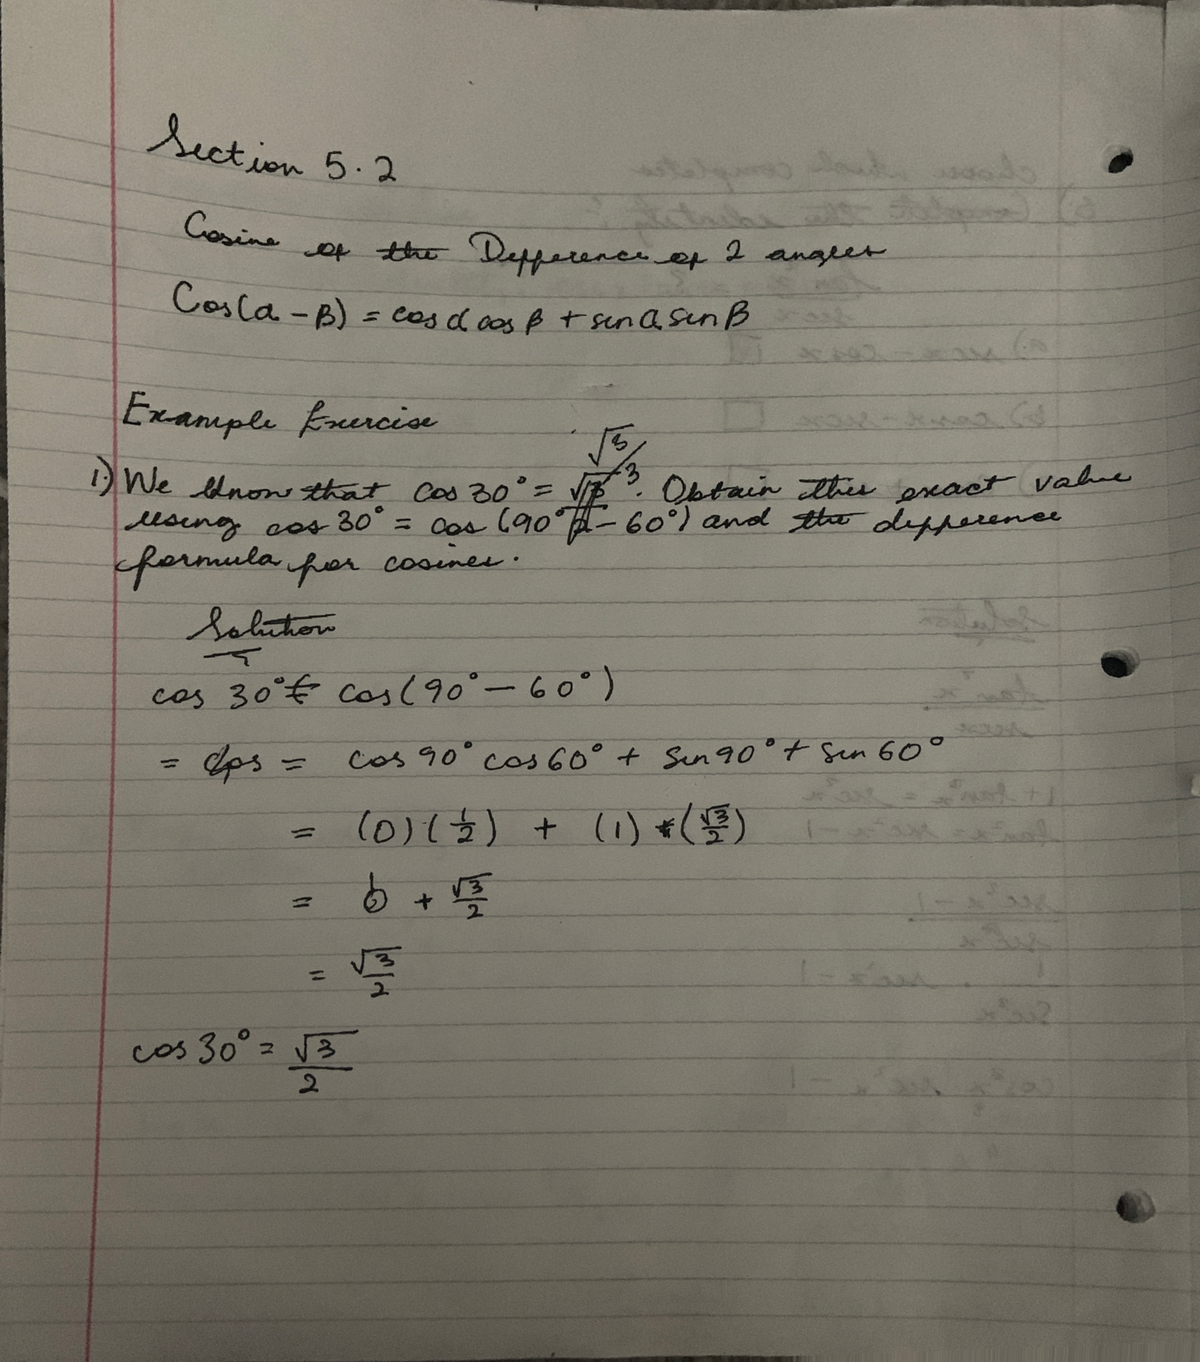 Section 5.2
Cosine of the Difference of 2 angles
Cos(α - β) = cos α cos β + sin α sin β
Example Exercise
1.) We know that cos 30° = √3. Obtain this exact value
using cos 30° = cos (90° - 60°) and the difference
formula for cosines.
Solution
cos 30° = cos(90° - 60°)
= = cos 90° cos 60° + sin 90° + sin 60°
= (0)(1/2) + (1) (√3/2)
= 0 + √3/2
= √3/2
cos 30° = √3/2